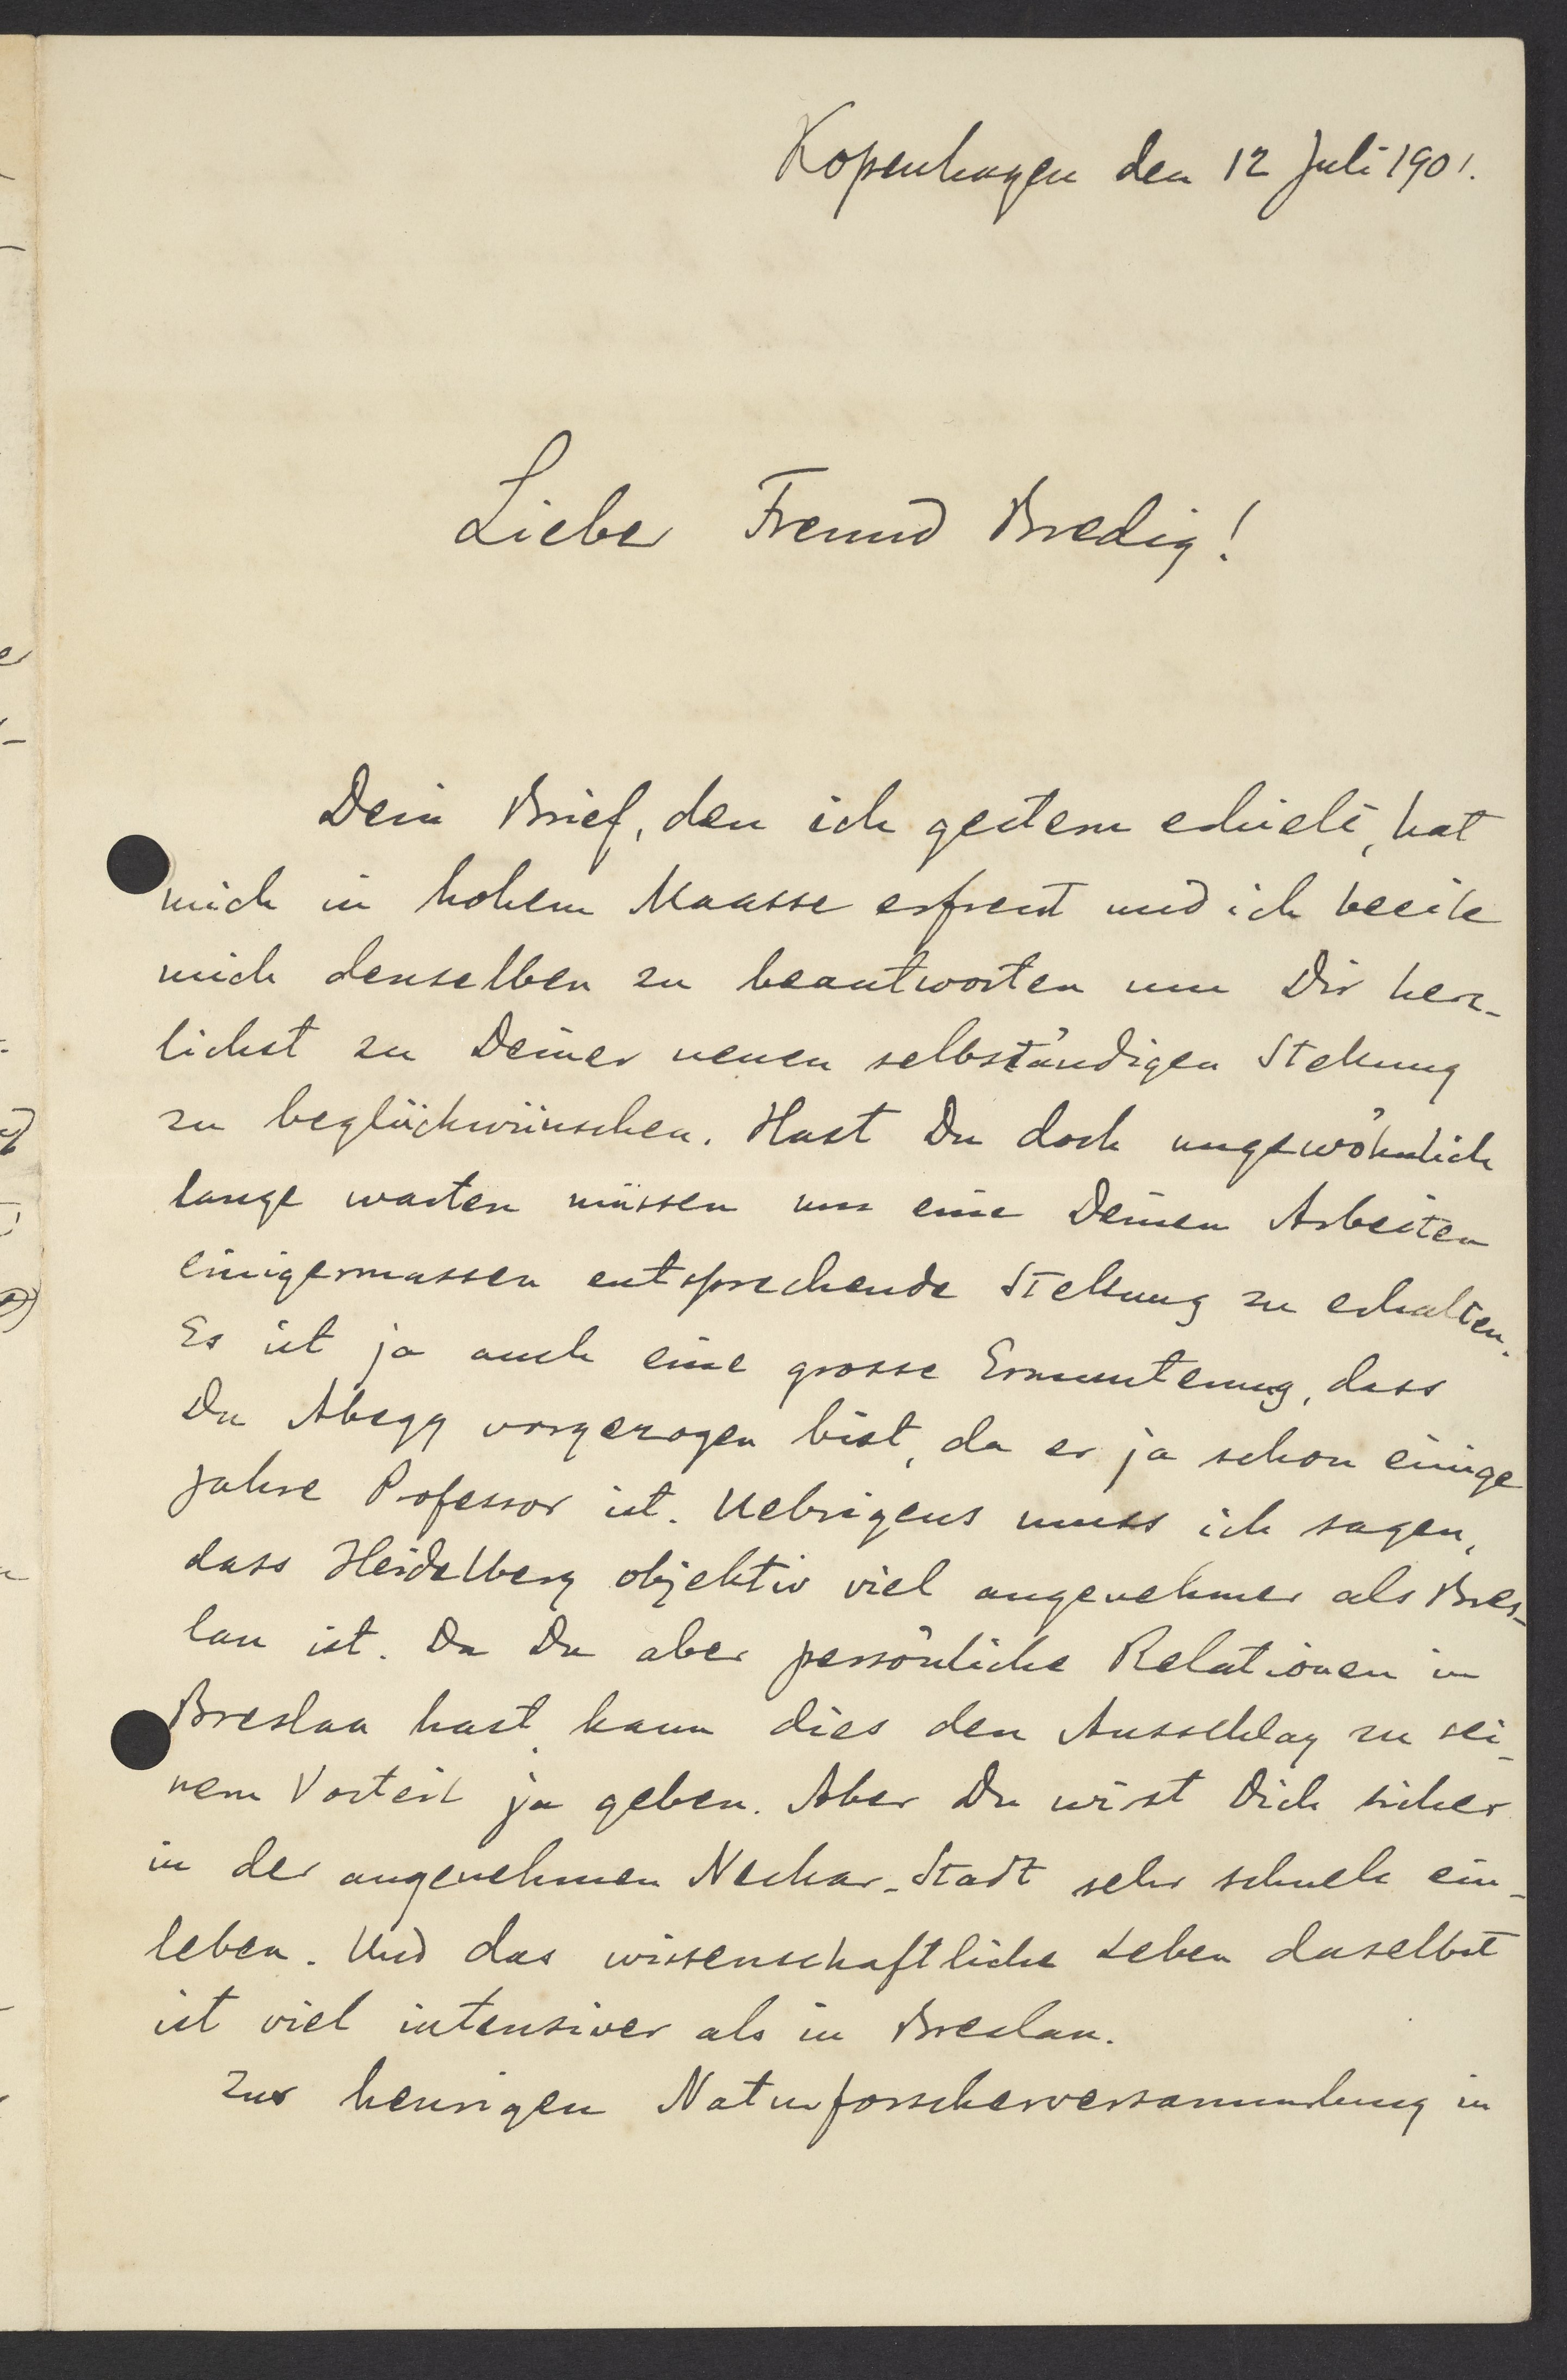 Kopenhagen den 12 Juli 1901.
Lieber Freund Bredig!
Dein Brief, den ich gestern erhielt, hat
mich in hohem Maasse erfreut und ich beeile
mich denselben zu beantworten um Dir herz-
lichst zu Deiner neuen selbständigen Stellung
zu beglückwünschen. Hast Du doch ungewöhnlich
lange warten müssen um eine Deinen Arbeiten
einigermassen entsprechende Stellung zu erhalten.
Es ist ja auch eine grosse Ermunterung, dass
Du Abegg vorgezogen bist, da er ja schon einige
Jahre Professor ist. Uebrigens muss ich sagen,
dass Heidelberg objektiv viel angenehmer als Bres-
lau ist. Da Du aber persönliche Relationen in
Breslau hast, kann dies den Ausschlag zu sei-
nem Vorteil ja geben. Aber Du wirst Dich sicher
in der angenehmen Neckar-Stadt sehr schnell ein-
leben. Und das wissenschaftliche Leben daselbst
ist viel intensiver als in Breslau.
Zur heurigen Naturforscherversammlung in